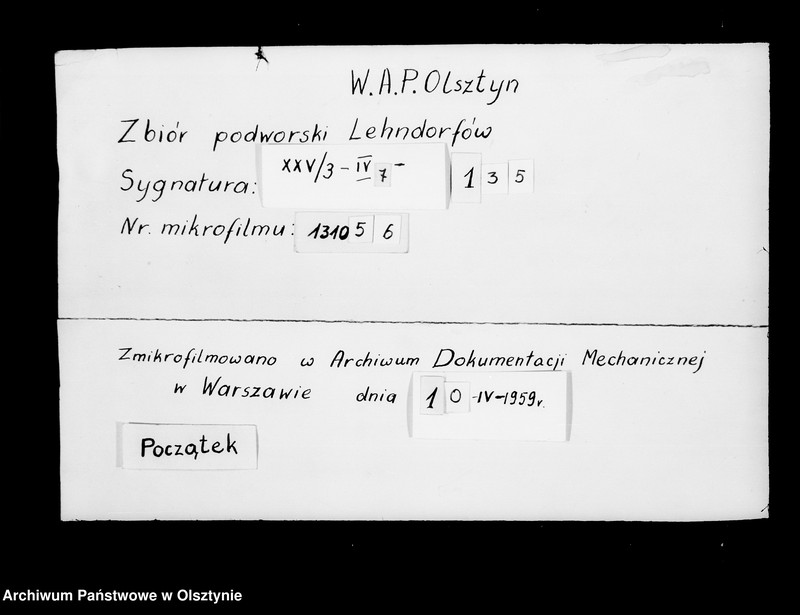 W.A.P. Olsztyn
Zbiór podworski Lehndorfów
Sygnatura: XXV/3 - IV 7 - 135
Nr. mikrofilmu: 131056
Zmikrofilmowano w Archiwum Dokumentacji Mechanicznej
w Warszawie dnia 10-IV-1959r.
Początek
Archiwum Państwowe w Olsztynie